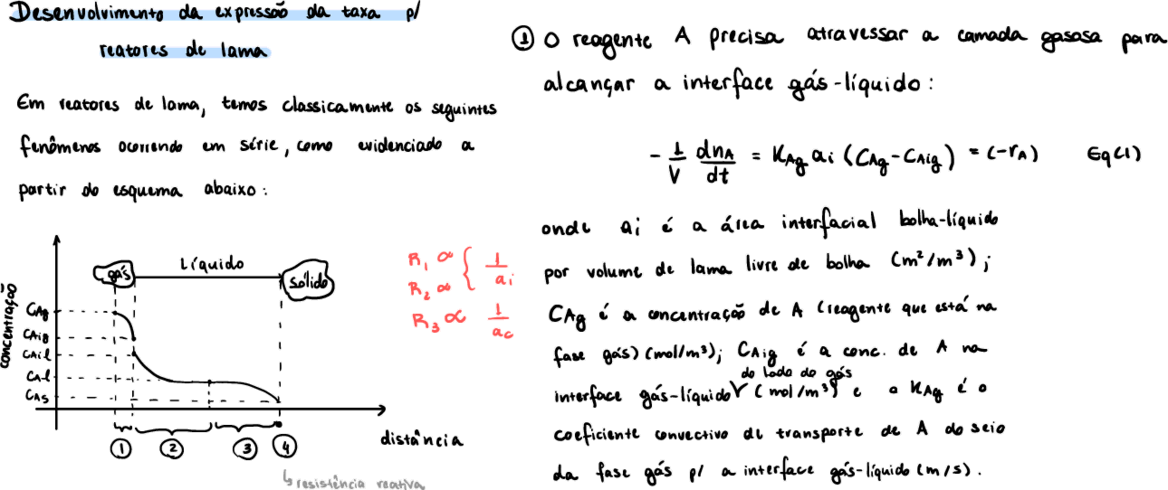 Desenvolvimento da expressão da taxa p/
reatores de lama
Em reatores de lama, temos classicamente os seguintes
fenômenos ocorrendo em série, como evidenciado a
partir do esquema abaixo:
concentração
CAg
CAig
CAil
CAl
CAs
gás
Líquido
sólido
① ② ③ ④
distância
↳ resistência reativa
R1 ∝ { 1/ai
R2 ∝
R3 ∝ 1/ac
① O reagente A precisa atravessar a camada gasosa para
alcançar a interface gás-líquido:
- 1/V dnA/dt = KAg ai (CAg - CAig) = (-rA) Eq(1)
onde ai é a área interfacial bolha-líquido
por volume de lama livre de bolha (m²/m³);
CAg é a concentração de A (reagente que está na
fase gás) (mol/m³); CAig é a conc. de A na
do lado do gás
interface gás-líquido (mol/m³) e o KAg é o
coeficiente convectivo de transporte de A do seio
da fase gás p/ a interface gás-líquido (m/s).